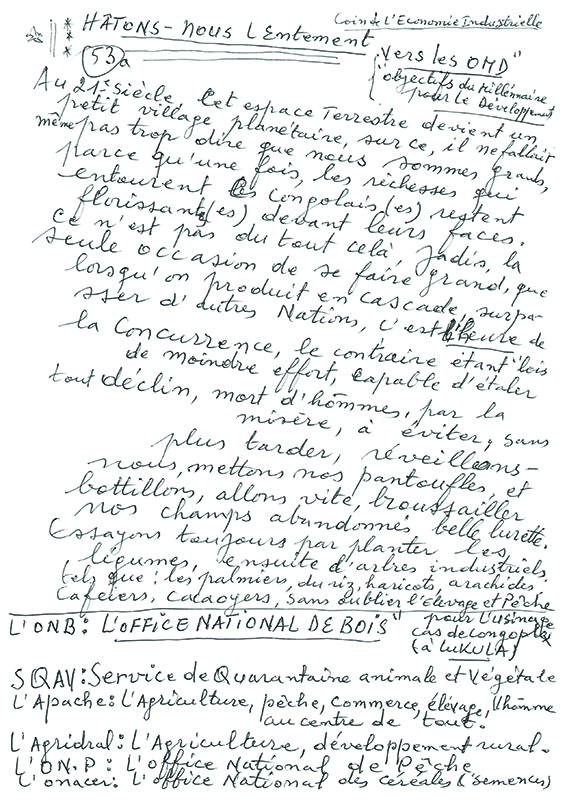 Coin de L'Economie Industrielle
HÂTONS-NOUS LENTEMENT
53a
Vers les OMD"
"objectifs du Millénnaire
pour le Développement
Au 21e Siècle, Cet espace Terrestre devient un
petit village planétaire, sur ce, il ne fallait
même pas trop dire que nous sommes grands,
parce qu'une fois, les richesses qui
entourent les Congolais(es) restent
florissants(es) devant leurs faces.
Ce n'est pas du tout celà, Jadis, la
seule occasion de se faire grand, que
lorsqu'on produit en cascade, surpa-
sser d'autres Nations, c'est l'heure de
la Concurrence, le contraire étant "lois
de moindre effort, capable d'étaler
tout déclin, mort d'hommes, par la
misère, à éviter, sans
plus tarder, réveillons-
nous, mettons nos pantoufles, et
bottillons, allons vite, broussailler
nos champs abandonnés belle lurette.
Essayons toujours par planter les
légumes, ensuite d'arbres industriels
tels que: les palmiers, du riz, haricots, arachides
Caféiers, cacaoyers, sans oublier l'Elevage et Pêche
L'ONB: L'OFFICE NATIONAL DE BOIS"
pour l'usinage
cas de congo
(à LUKULA)
SQAV: Service de Quarantaine animale et Végétale
L'Apache: L'Agriculture, pêche, commerce, élévage, l'homme
au centre de tout.
L'Agridral: L'Agriculture, développement rural.
L'ON.P: L'office National de Pêche
L'onacer: L'office National des céréales (semences)